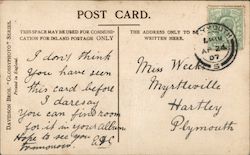 POST CARD.
THIS SPACE MAY BE USED FOR COMMUNI-
CATION FOR INLAND POSTAGE ONLY
THE ADDRESS ONLY TO BE
WRITTEN HERE.
DAVIDSON BROS. "GLOSSOPHOTO" SERIES.
Printed in England.
PLYMOUTH
AP 24
07
I don't think
You have seen
this card before
I daresay
you can find room
for it in your album
Hope to see you
tomorrow.
Miss Week
Myrtleville
Hartley
Plymouth